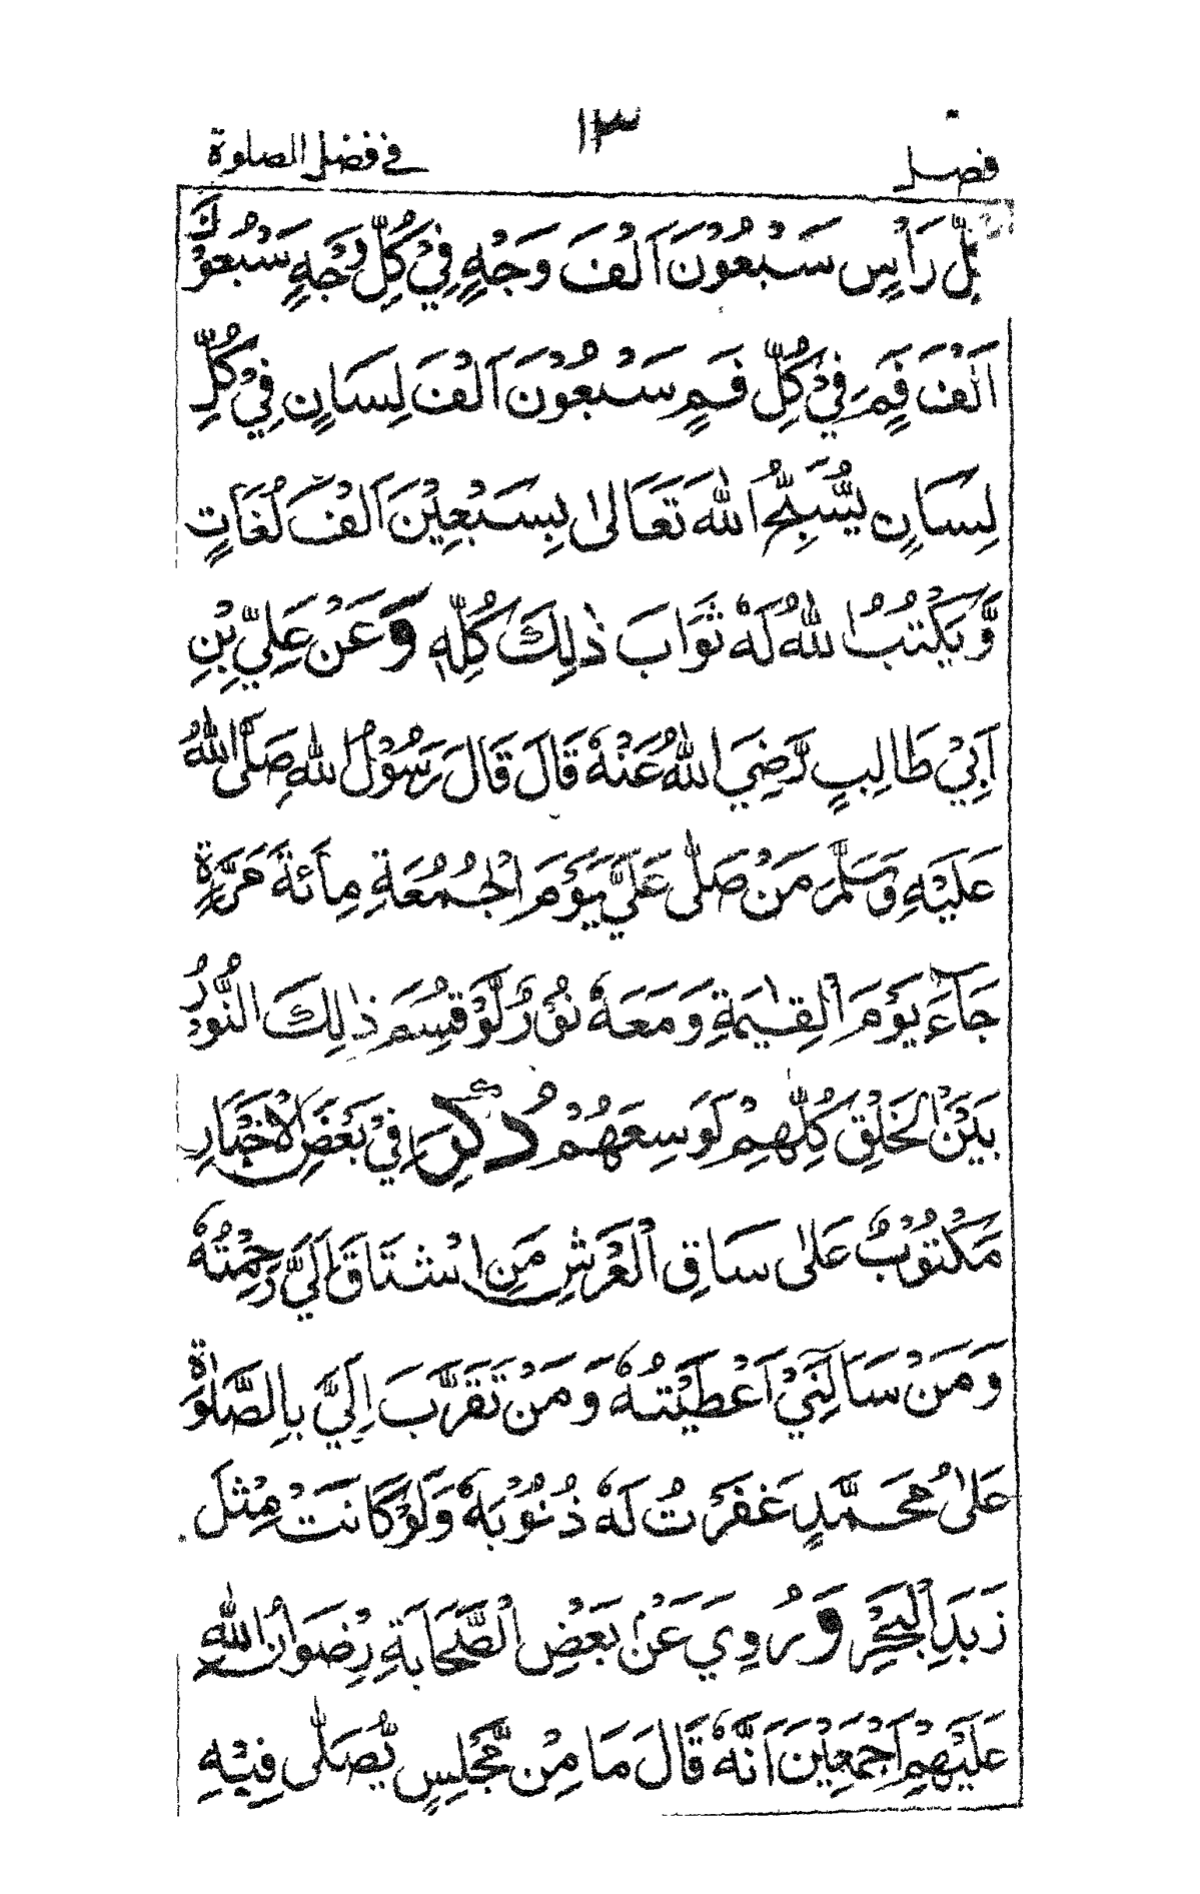 فصل ١٣ في فضل الصلوة
كُلِّ رَأْسٍ سَبْعُوْنَ اَلْفَ وَجْهٍ فِيْ كُلِّ وَجْهٍ سَبْعُوْنَ
اَلْفَ فَمٍ فِيْ كُلِّ فَمٍ سَبْعُوْنَ اَلْفَ لِسَانٍ فِيْ كُلِّ
لِسَانٍ يُّسَبِّحُ اللهَ تَعَالٰى بِسَبْعِيْنَ اَلْفَ لُغَاتٍ
وَّيَكْتُبُ اللهُ لَهٗ ثَوَابَ ذٰلِكَ كُلِّهٖ وَعَنْ عَلِيِّ بْنِ
اَبِيْ طَالِبٍ رَّضِيَ اللهُ عَنْهُ قَالَ قَالَ رَسُوْلُ اللهِ صَلَّى اللهُ
عَلَيْهِ وَسَلَّمَ مَنْ صَلّٰى عَلَيَّ يَوْمَ الْجُمُعَةِ مِائَةَ مَرَّةٍ
جَآءَ يَوْمَ الْقِيٰمَةِ وَمَعَهٗ نُوْرٌ لَّوْ قُسِمَ ذٰلِكَ النُّوْرُ
بَيْنَ الْخَلْقِ كُلِّهِمْ لَوَسِعَهُمْ ذُكِرَ فِيْ بَعْضِ الْاَخْبَارِ
مَكْتُوْبٌ عَلٰى سَاقِ الْعَرْشِ مَنِ اشْتَاقَ اِلَيَّ رَحِمْتُهٗ
وَمَنْ سَاَلَنِيْ اَعْطَيْتُهٗ وَمَنْ تَقَرَّبَ اِلَيَّ بِالصَّلٰوةِ
عَلٰى مُحَمَّدٍ غَفَرْتُ لَهٗ ذُنُوْبَهٗ وَلَوْ كَانَتْ مِثْلَ
زَبَدِ الْبَحْرِ وَرُوِيَ عَنْ بَعْضِ الصَّحَابَةِ رِضْوَانُ اللهِ
عَلَيْهِمْ اَجْمَعِيْنَ اَنَّهٗ قَالَ مَا مِنْ مَّجْلِسٍ يُّصَلّٰى فِيْهِ